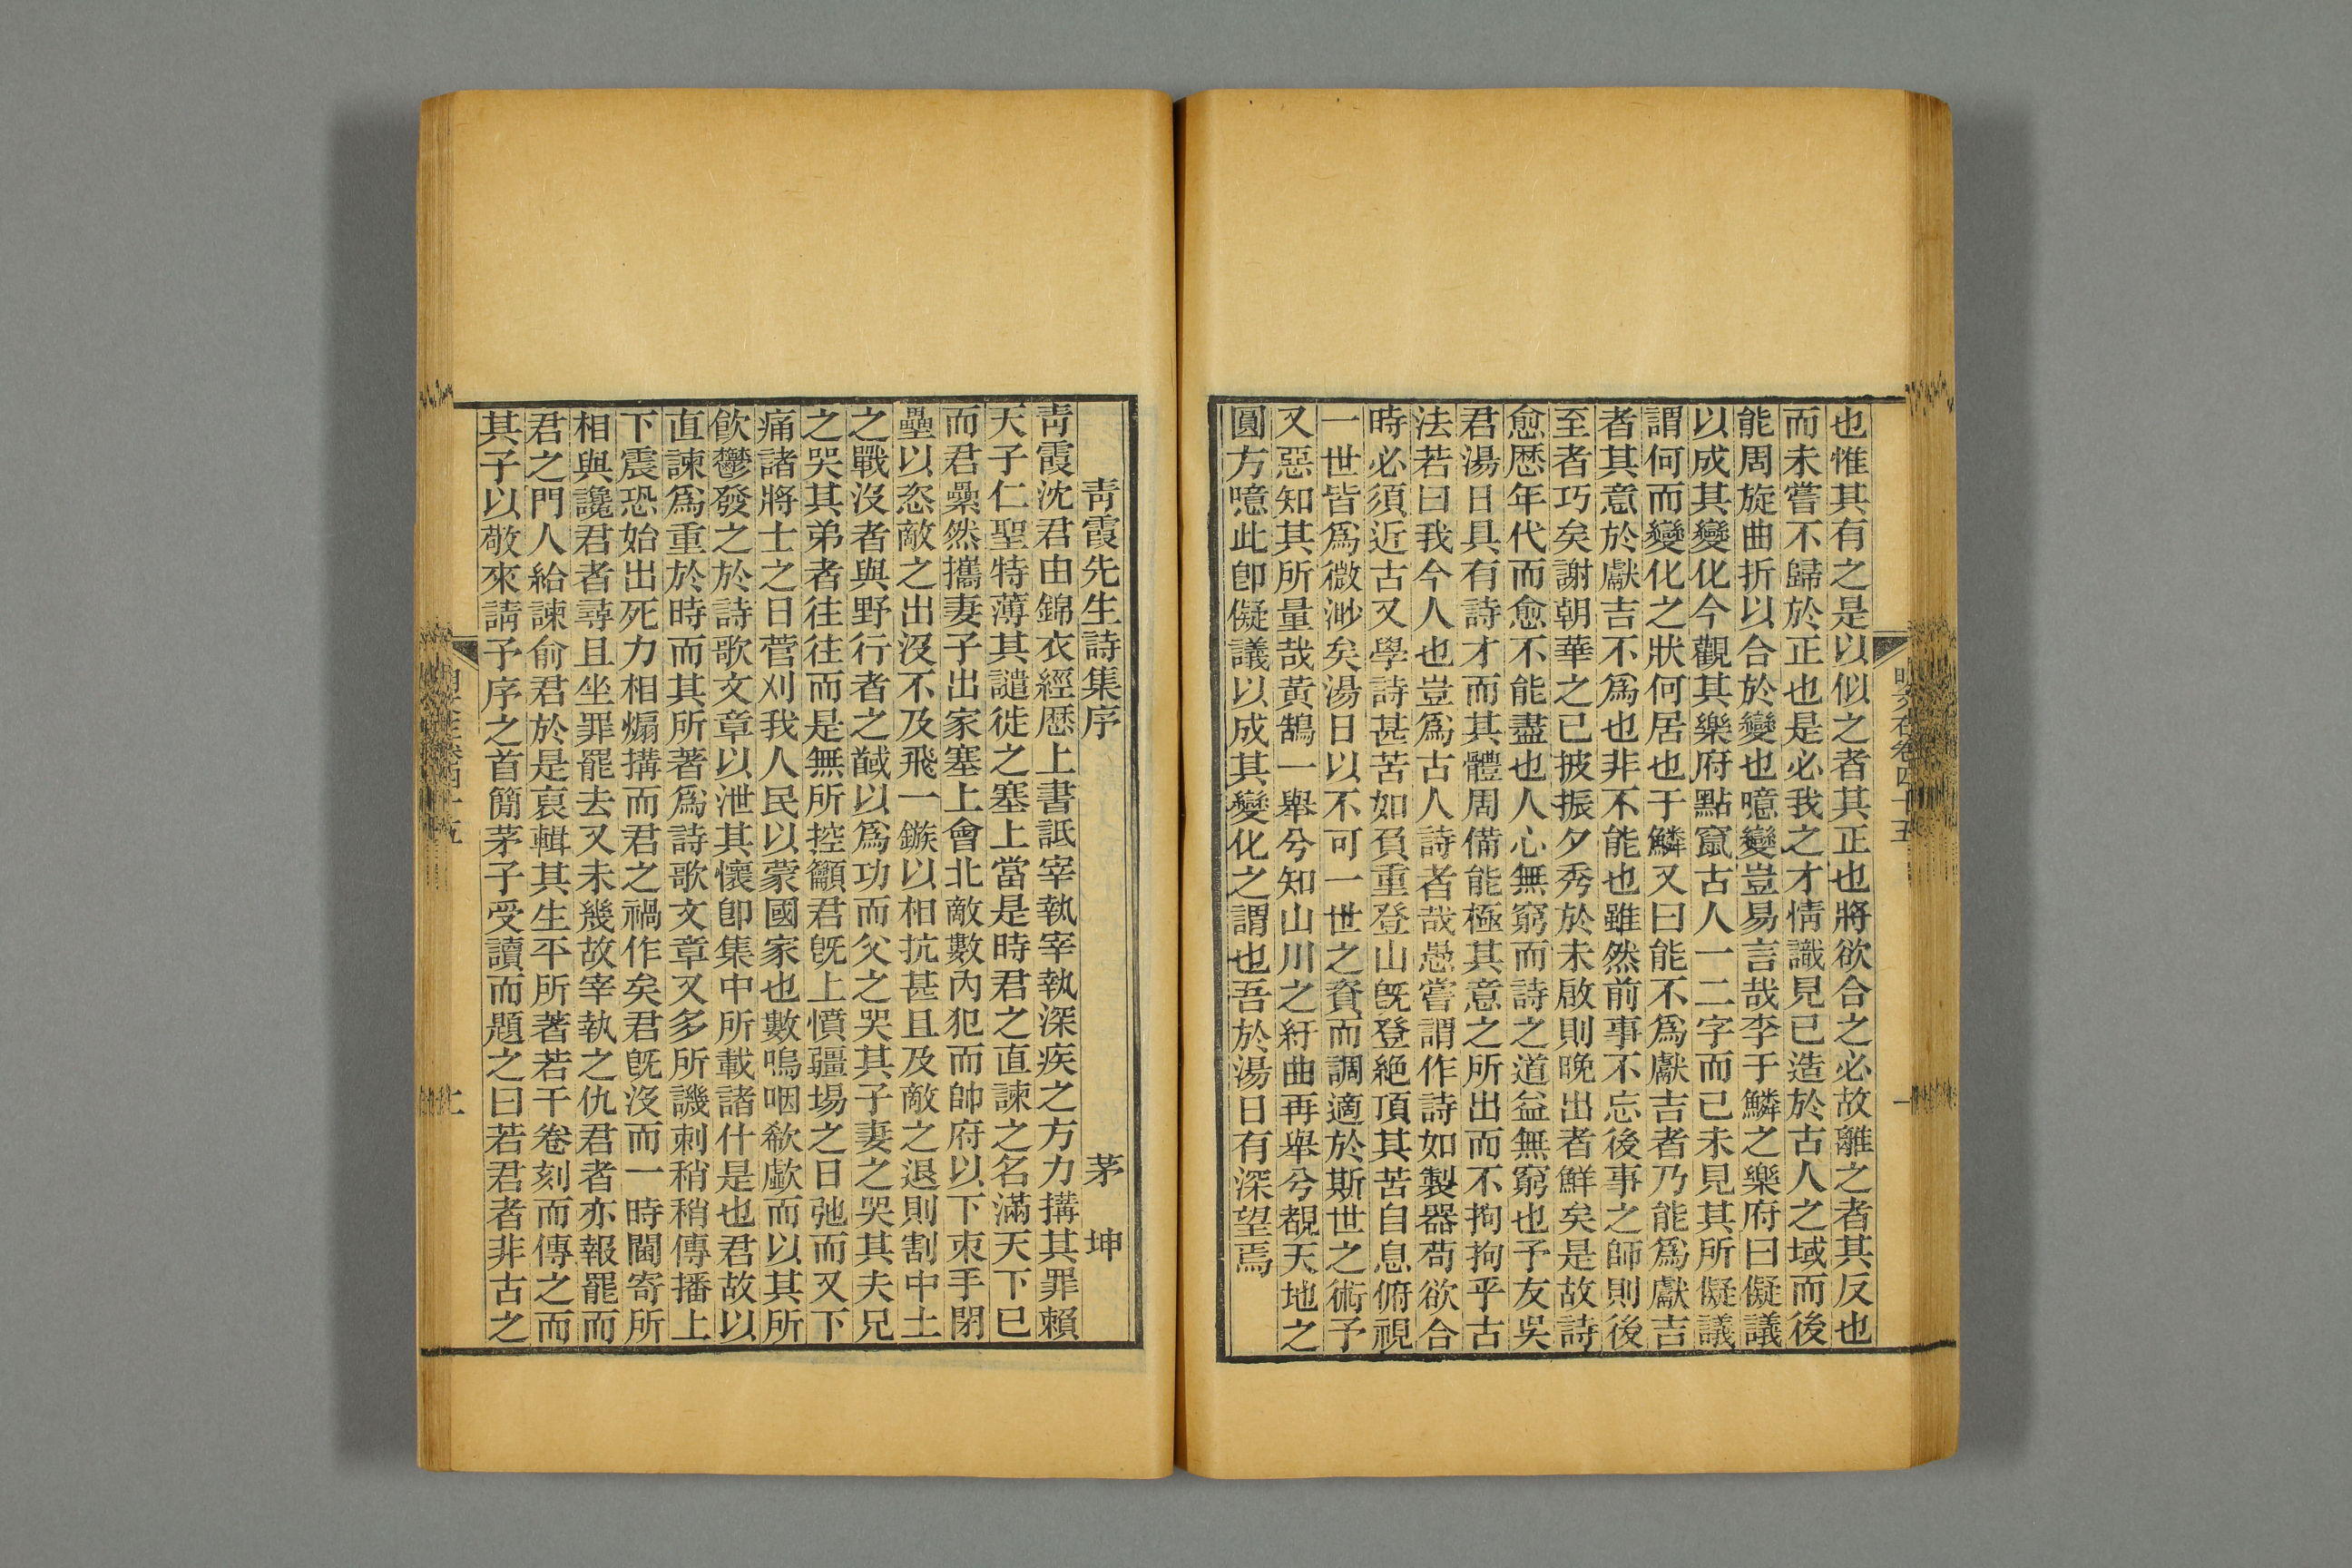 也惟其有之是以似之者其正也將欲合之必故離之者其反也
而未嘗不歸於正也是必我之才情識見已造於古人之域而後
能周旋曲折以合於變也噫變豈易言哉李于鱗之樂府曰儗議
以成其變化今觀其樂府點竄古人一二字而已未見其所儗議
謂何而變化之狀何居也于鱗又曰能不爲獻吉者乃能爲獻吉
者其意於獻吉不爲也非不能也雖然前事不忘後事之師則後
至者巧矣謝朝華之已披振夕秀於未啟則晚出者鮮矣是故詩
愈歷年代而愈不能盡也人心無窮而詩之道益無窮也予友吳
君湯日具有詩才而其體周備能極其意之所出而不拘拘乎古
法若曰我今人也豈爲古人詩者哉愚嘗謂作詩如製器苟欲合
時必須近古又學詩甚苦如負重登山旣登絶頂其苦自息俯視
一世皆爲微渺矣湯日以不可一世之資而調適於斯世之術予
又惡知其所量哉黃鵠一舉兮知山川之紆曲再舉兮覩天地之
圓方噫此卽儗議以成其變化之謂也吾於湯日有深望焉
卷四十五
靑霞先生詩集序 茅坤
靑霞沈君由錦衣經歷上書詆宰執宰執深疾之方力搆其罪賴
天子仁聖特薄其譴徙之塞上當是時君之直諫之名滿天下已
而君纍然攜妻子出家塞上會北敵數內犯而帥府以下束手閉
壘以恣敵之出沒不及飛一鏃以相抗甚且及敵之退則割中土
之戰沒者與野行者之馘以爲功而父之哭其子妻之哭其夫兄
之哭其弟者往往而是無所控籲君旣上憤疆場之日弛而又下
痛諸將士之日菅刈我人民以蒙國家也數嗚咽欷歔而以其所
飮鬱發之於詩歌文章以泄其懷卽集中所載諸什是也君故以
直諫爲重於時而其所著爲詩歌文章又多所譏刺稍稍傳播上
下震恐始出死力相煽搆而君之禍作矣君旣沒而一時閫寄所
相與讒君者尋且坐罪罷去又未幾故宰執之仇君者亦報罷而
君之門人給諫俞君於是裒輯其生平所著若干卷刻而傳之而
其子以敬來請予序之首簡茅子受讀而題之曰若君者非古之